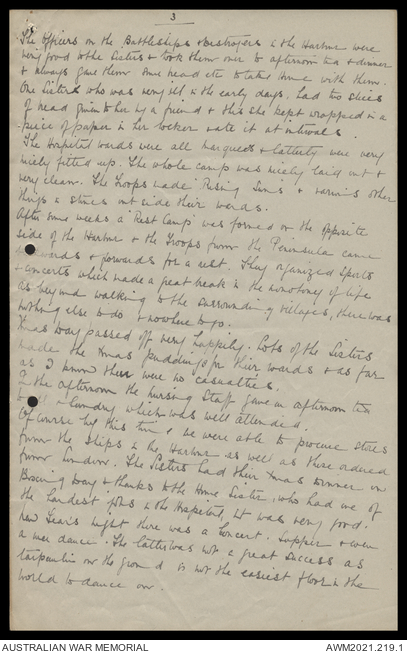 3
The Officers on the Battleships & Destroyers in the Harbour were
very good to the Sisters & took them over to afternoon tea & dinner
& always gave them some bread etc to take home with them.
One Sister who was very ill in the early days, had two slices
of bread given to her by a friend & this she kept wrapped in a
piece of paper in her locker & ate it at intervals.
The Hospital wards were all marquees & latterly were very
nicely fitted up. The whole camp was nicely laid out &
very clean. The Troops made Rising Suns & various other
things in stones outside their wards.
After some weeks a 'Rest Camp' was formed on the opposite
side of the Harbour & the Troops from the Peninsula came
backwards & forwards for a rest. They organized Sports
& concerts which made a great break in the monotony of life
as beyond walking to the surrounding villages, there was
nothing else to do & nowhere to go.
Xmas Day passed off very happily. Lots of the Sisters
made the Xmas puddings for their wards & as far
as I know there were no casualties.
In the afternoon the Nursing Staff gave an afternoon tea
to all & Sundry which was well attended.
Of course by this time we were able to procure stores
from the Ships in the Harbour as well as those ordered
from London. The Sisters had their Xmas dinner on
Boxing Day & thanks to the Home Sister, who had one of
the hardest jobs in the Hospital, it was very good.
New Year's night there was a Concert. Supper & even
a wee dance. The latter was not a great success as
tarpaulin on the ground is not the easiest floor in the
world to dance on.
AUSTRALIAN WAR MEMORIAL
AWM2021.219.1